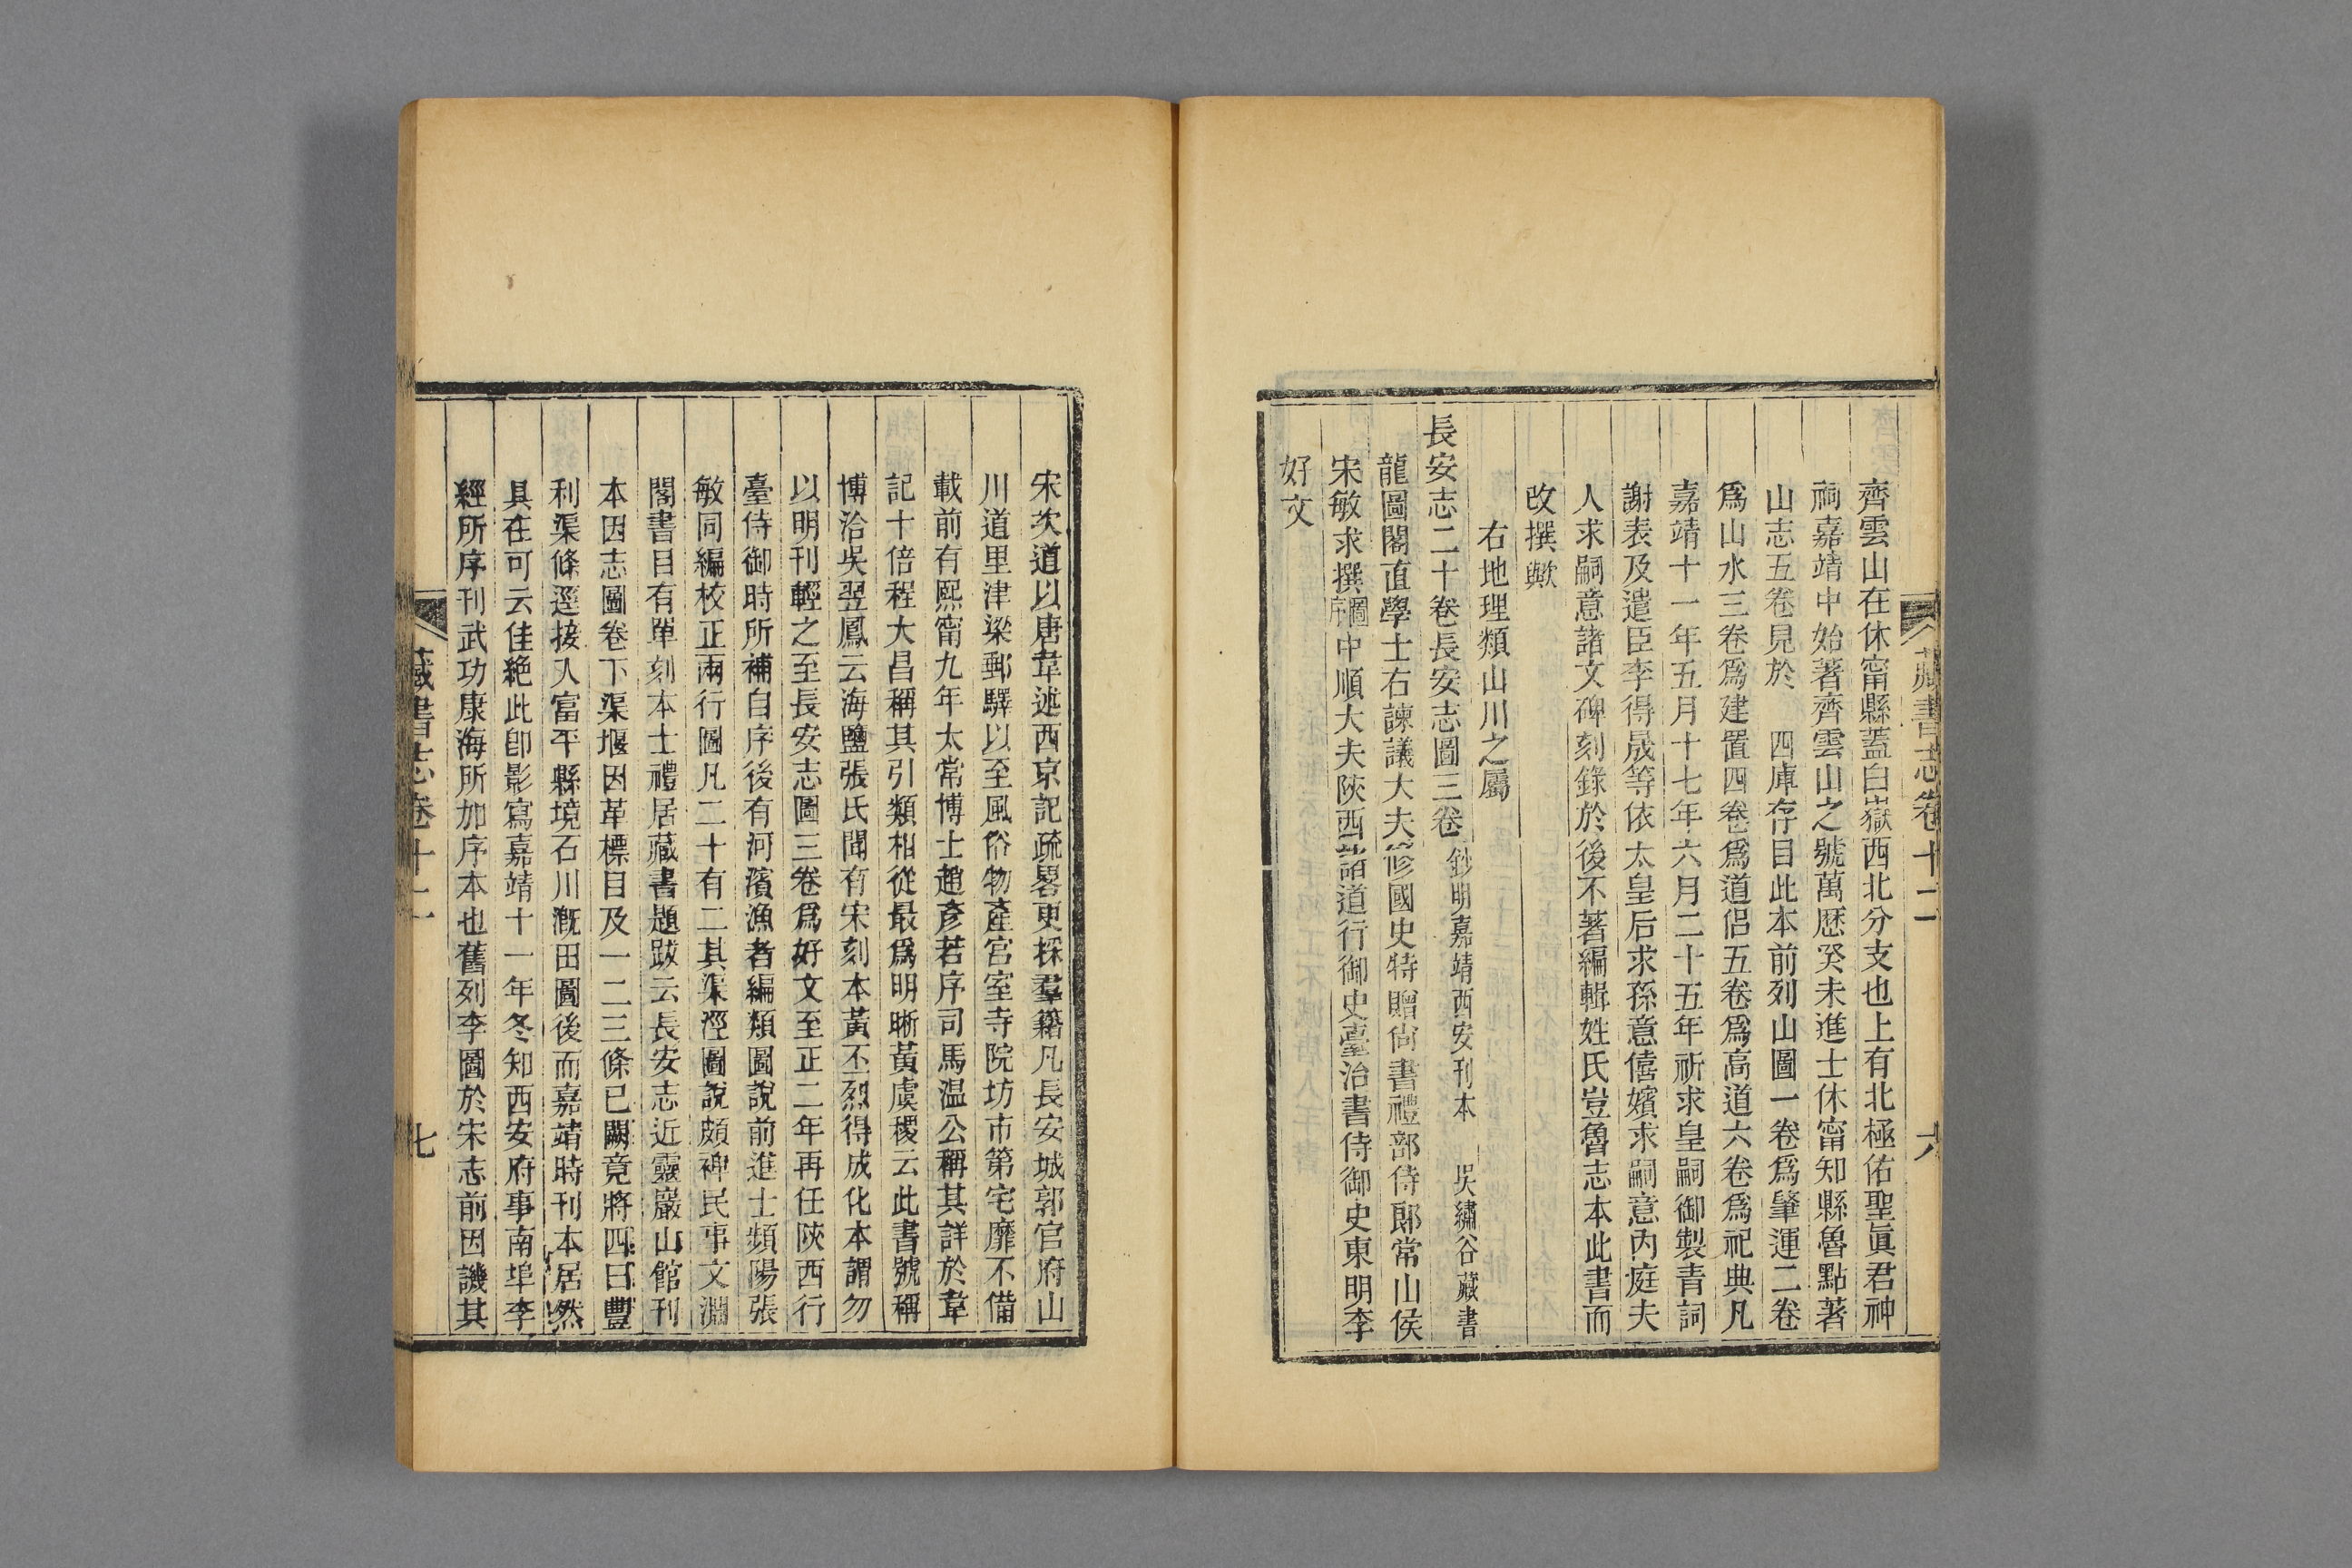 藏書志卷十二 六
齊雲山在休甯縣蓋白嶽西北分支也上有北極佑聖眞君神
祠嘉靖中始著齊雲山之號萬厯癸未進士休甯知縣魯點著
山志五卷見於 四庫存目此本前列山圖一卷爲肇運二卷
爲山水三卷爲建置四卷爲道侶五卷爲高道六卷爲祀典凡
嘉靖十一年五月十七年六月二十五年祈求皇嗣御製青詞
謝表及遣臣李得晟等依太皇后求孫意僖嬪求嗣意內庭夫
人求嗣意諸文碑刻錄於後不著編輯姓氏豈魯志本此書而
改撰歟
右地理類山川之屬
長安志二十卷長安志圖三卷 鈔明嘉靖西安刊本 吳繡谷藏書
龍圖閣直學士右諫議大夫修國史特贈尙書禮部侍郞常山侯
宋敏求撰圖序中順大夫陝西諸道行御史臺治書侍御史東明李
好文
宋次道以唐韋述西京記疏畧更採羣籍凡長安城郭官府山
川道里津梁郵驛以至風俗物產宫室寺院坊市第宅靡不備
載前有熙甯九年太常博士趙彥若序司馬温公稱其詳於韋
記十倍程大昌稱其引類相從最爲明晰黃虞稷云此書號稱
博洽吳翌鳳云海鹽張氏聞有宋刻本黃丕烈得成化本謂勿
以明刊輕之至長安志圖三卷爲好文至正二年再任陝西行
臺侍御時所補自序後有河濱漁者編類圖說前進士頻陽張
敏同編校正兩行圖凡二十有二其渠涇圖說頗裨民事文淵
閣書目有單刻本士禮居藏書題跋云長安志近靈巖山館刊
本因志圖卷下渠堰因革標目及一二三條已闕竟將四曰豐
利渠條逕接入富平縣境石川漑田圖後而嘉靖時刊本居然
具在可云佳絶此卽影寫嘉靖十一年冬知西安府事南埠李
經所序刊武功康海所加序本也舊列李圖於宋志前因譏其
藏書志卷十二 七